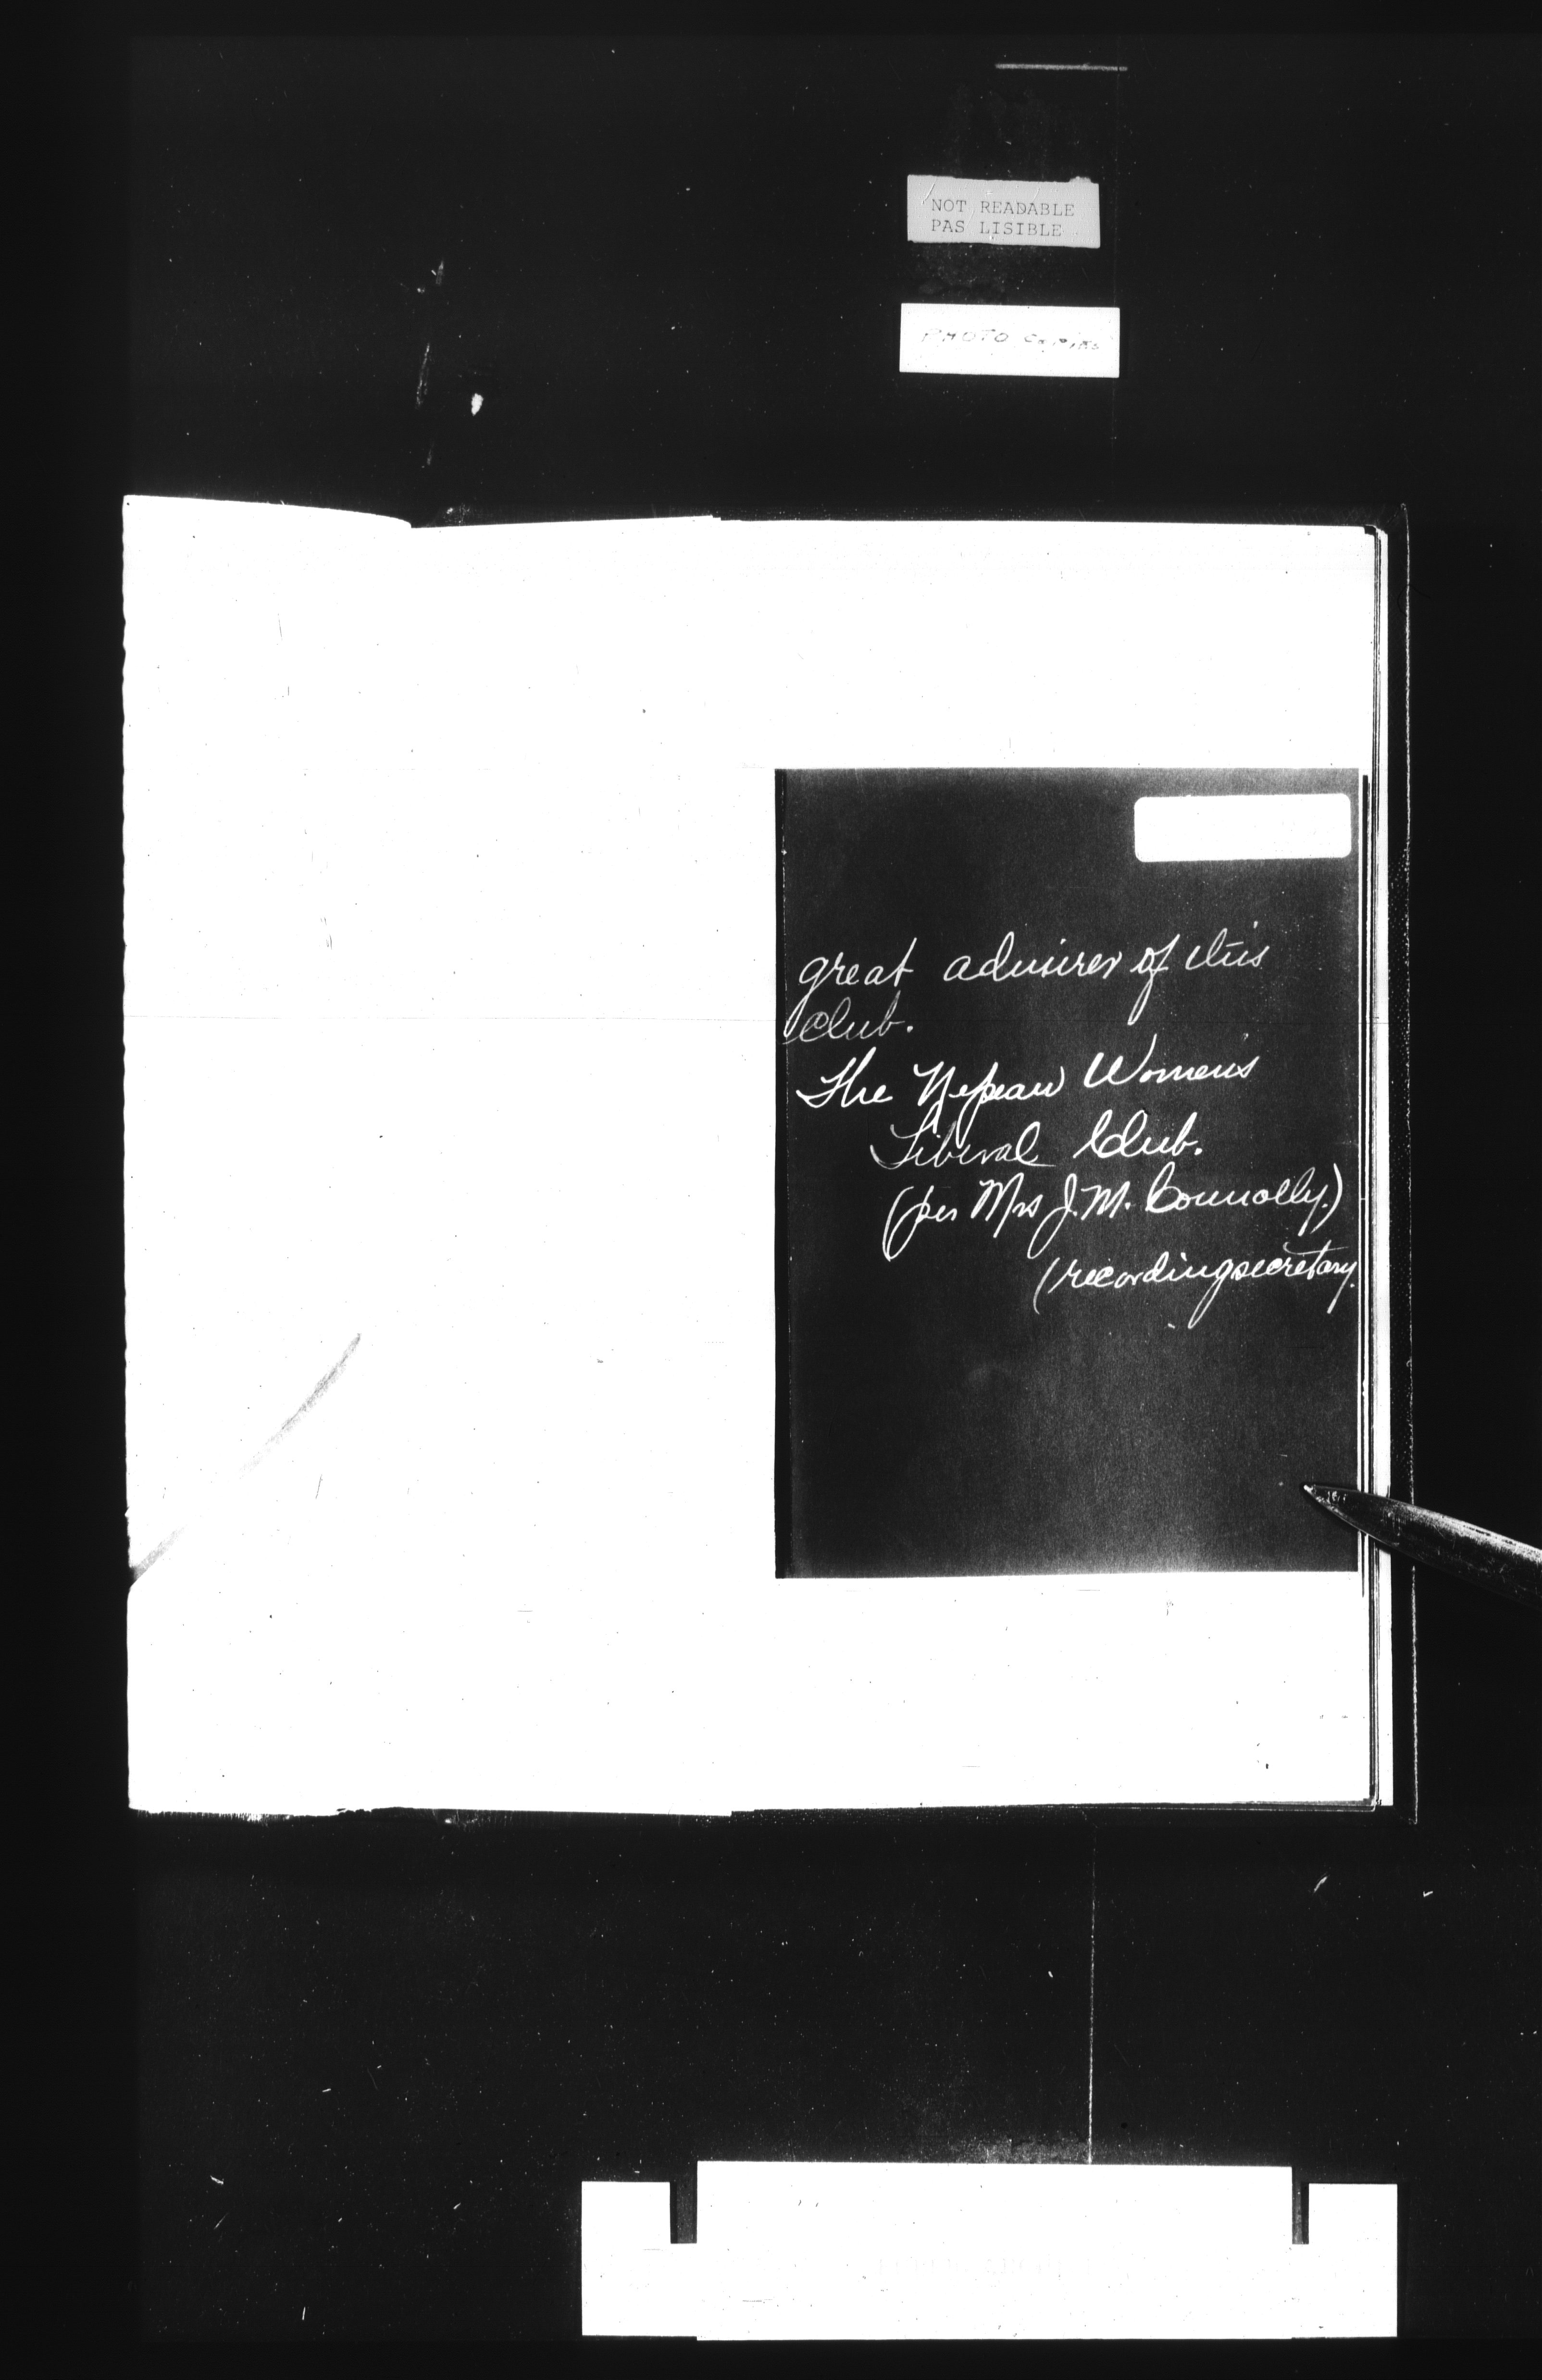 NOT READABLE
PAS LISIBLE
PHOTO COPIES
great admirer of this
Club.
The Nepean Women's
Liberal Club.
(per Mrs J. M. Connolly.)
(recording secretary.